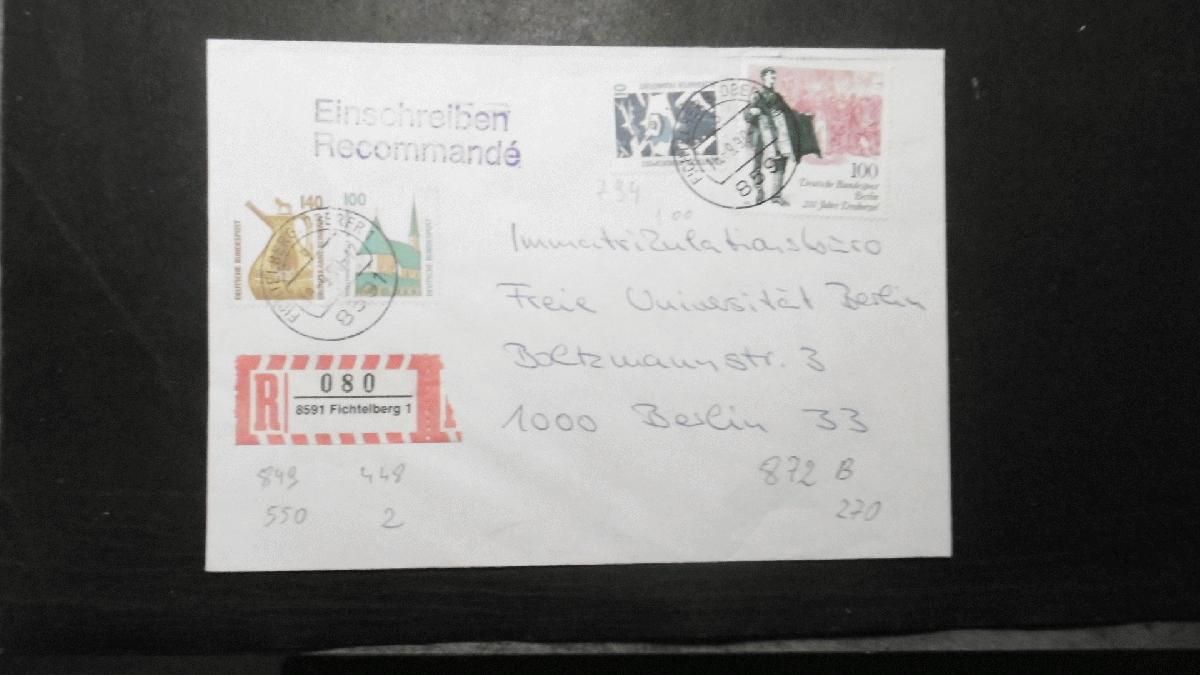 Einschreiben
Recommandé
10
100
Deutsche Bundespost
Berlin
200 Jahre Tierhorgel
794
100
140
100
DEUTSCHE BUNDESPOST
DEUTSCHE BUNDESPOST
8591
Immatrikulationsbüro
Freie Universität Berlin
Boltzmannstr. 3
1000 Berlin 33
R
080
8591 Fichtelberg 1
849 448
550 2
872 B
270